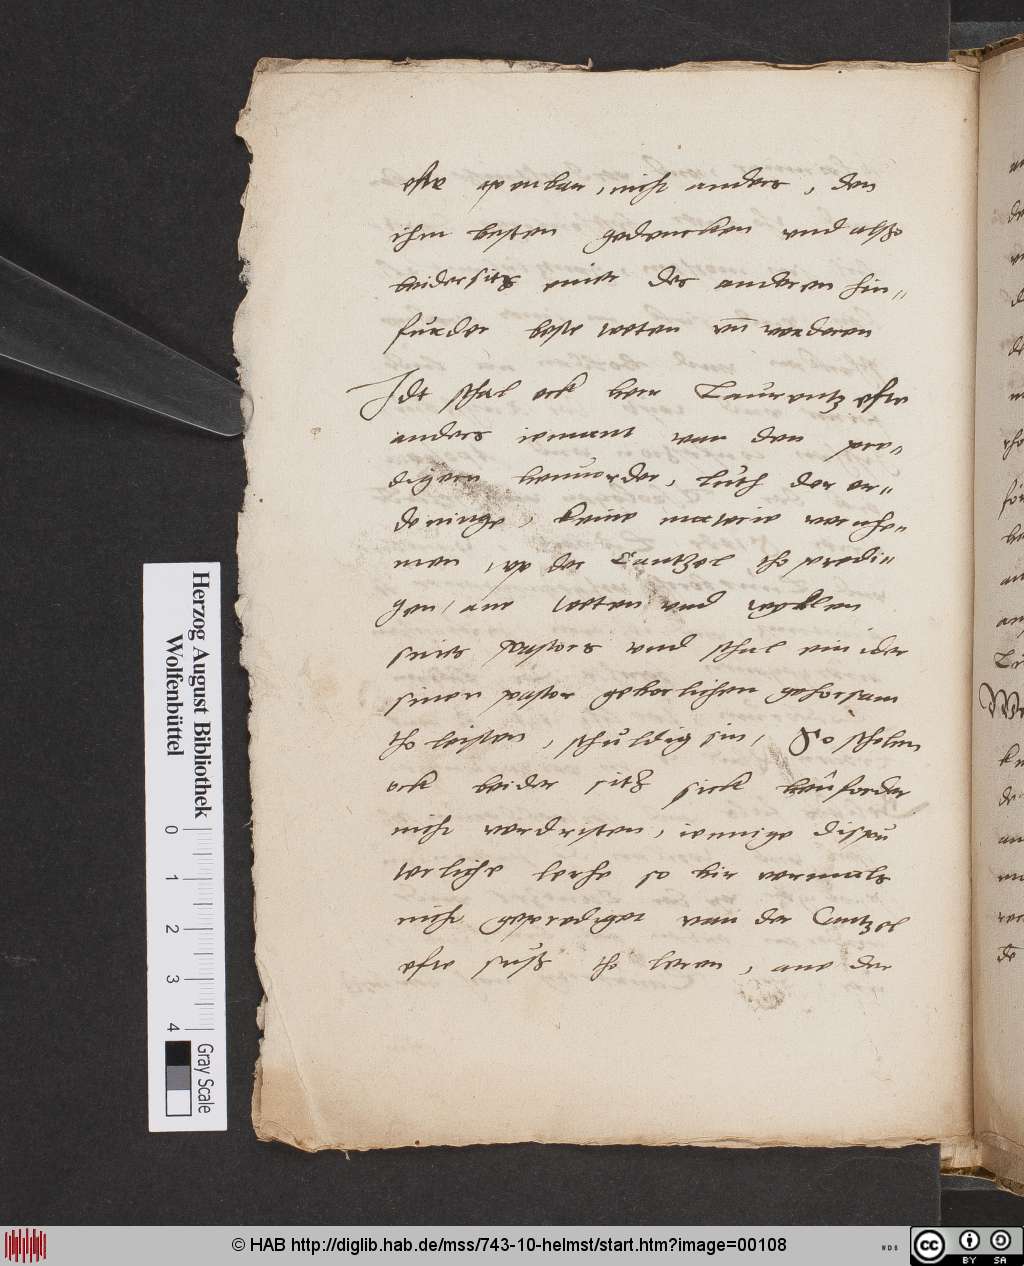 efte apenbar, nicht anders, den
ihm besten gedencken vnd alßo
beidersitz einer des anderen hin=
furder beste weten vñ vorderen
Idt schal ock herr Laurentz efte
anders iemant van den pre=
digern henuorder, luth der or=
deninge, keine materie vornhe=
men, vp der Cantzel tho predi=
gen, ane weten vnd willen
sines Pastors vnd schal ein ider
sinen pastor geborlichen gehorsam
tho leisten, schuldig sin, So scholen
ock beider sitz sick henforder
nicht vordristen, iennige dispu
terliche lerhe so hir vormals
nicht geprediget van der Cantzel
efte sust tho leren, ane der
Herzog August Bibliothek
Wolfenbüttel
0 1 2 3 4
Gray Scale
© HAB http://diglib.hab.de/mss/743-10-helmst/start.htm?image=00108
cc BY SA